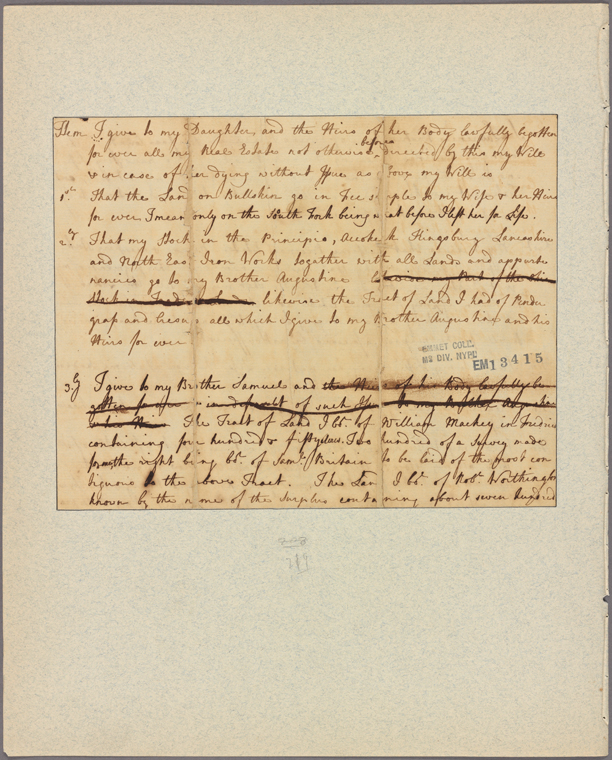 Item I give to my Daughter, and the Heirs of her Body lawfully begotten
for ever all my Real Estate not otherwise before directed by this my Will
& in case of her dying without Issue as above my Will is
1st. That the Land on Bullskin go in Fee simple to my Wife & her Heirs
for ever I mean only on the South Fork being what before I left her for Life.
2dy. That my Stock in the Principio, Accokeek Kingsbury Lancashire
and North East Iron Works together with all Lands and appurte
nancies go to my Brother Augustine likewise my Part of the Ohio
Stock in likewise the Tract of Land I had of
and all which I give to my Brother Augustine and his
Heirs for ever
EMMET COLL.
MS DIV. NYPL
EM13415
3dly I give to my Brother Samuel and the Heirs of his Body lawfully be
gotten for ever in default of such Issue to my Brother Augustine
The Tract of Land I bt. of William Mackey in Fredrick
containing four hundred & Two hundred of a survey made
the right being bt. of Saml. Brittain to be laid of the most con
tiguous to the above Tract. The Land I bt. of Robt. Worthington
known by the name of the Surplus containing about seven hundred